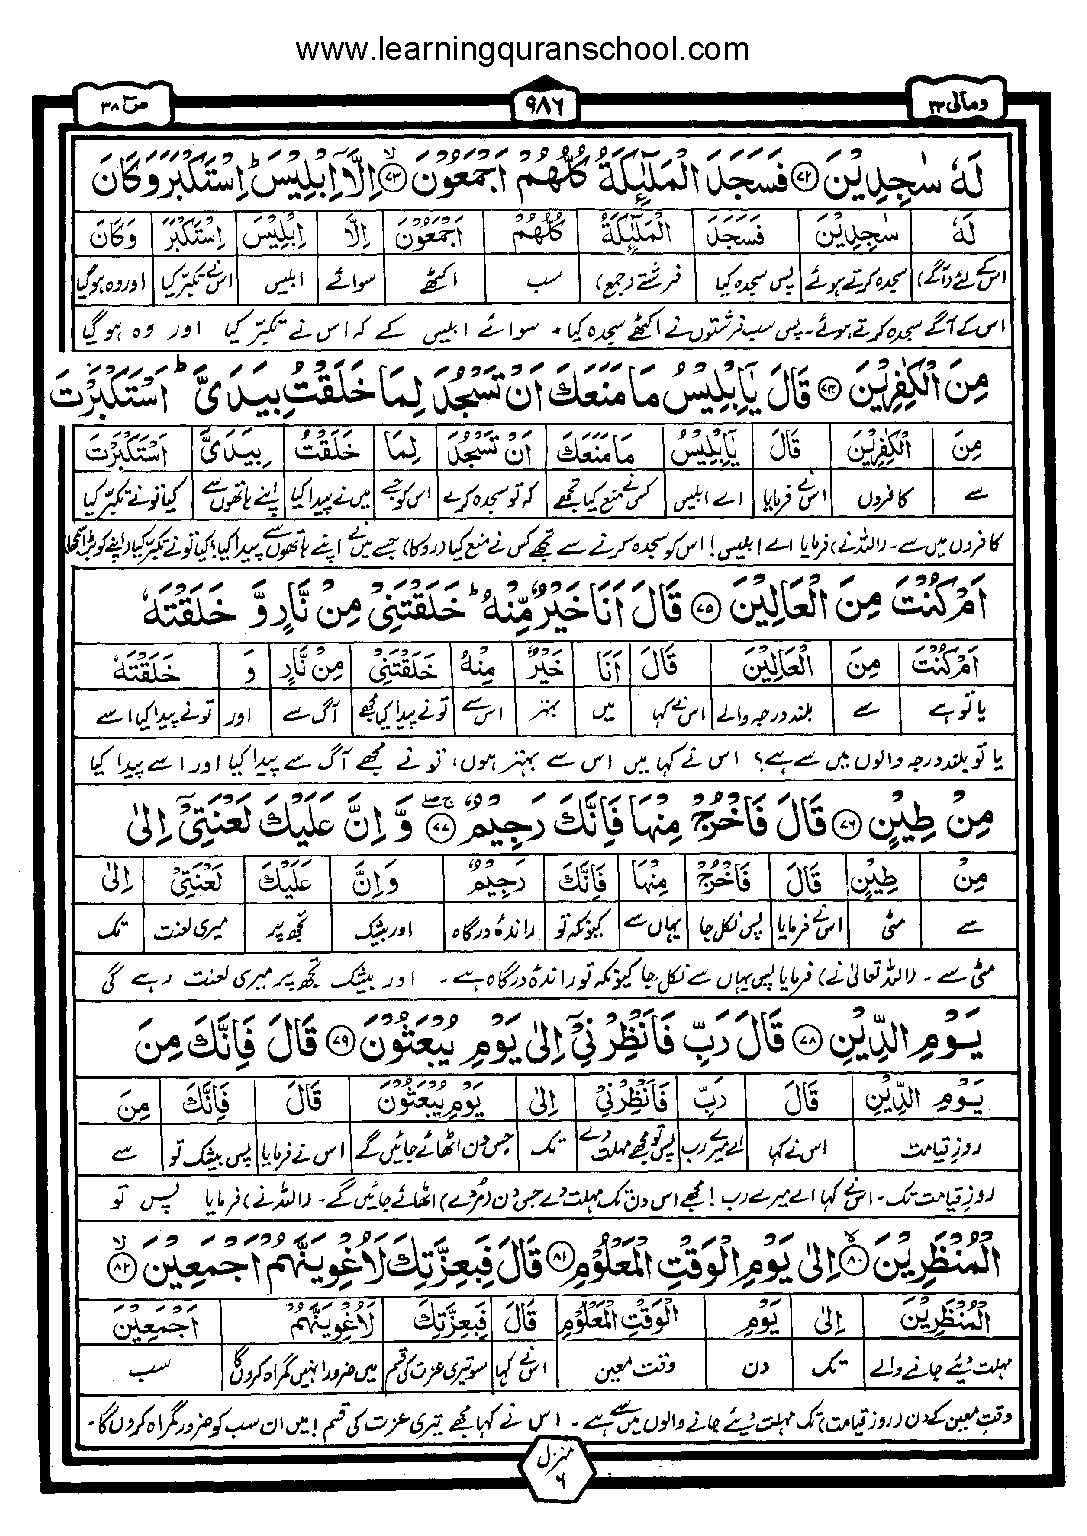 www.learningquranschool.com
ومآلی ۲۳
۹۸۶
صٓ ۳۸
لَهٗ سٰجِدِيْنَ ﴿۷۲﴾ فَسَجَدَ الْمَلٰٓئِكَةُ كُلُّهُمْ اَجْمَعُوْنَ ﴿۷۳﴾ اِلَّاۤ اِبْلِيْسَ ؕ اِسْتَكْبَرَ وَكَانَ
لَهٗ سٰجِدِيْنَ فَسَجَدَ الْمَلٰٓئِكَةُ كُلُّهُمْ اَجْمَعُوْنَ اِلَّاۤ اِبْلِيْسَ اِسْتَكْبَرَ وَكَانَ
اس کے لئے (آگے) سجدہ کرتے ہوئے پس سجدہ کیا فرشتے (جمع) سب اکٹھے سوائے ابلیس اس نے تکبر کیا اور وہ ہو گیا
اس کے آگے سجدہ کرتے ہوئے۔ پس سب فرشتوں نے اکٹھے سجدہ کیا۔ سوائے ابلیس کے کہ اس نے تکبر کیا اور وہ ہو گیا
مِنَ الْكٰفِرِيْنَ ﴿۷۴﴾ قَالَ يٰۤاِبْلِيْسُ مَا مَنَعَكَ اَنْ تَسْجُدَ لِمَا خَلَقْتُ بِيَدَيَّ ؕ اَسْتَكْبَرْتَ
مِنَ الْكٰفِرِيْنَ قَالَ يٰۤاِبْلِيْسُ مَا مَنَعَكَ اَنْ تَسْجُدَ لِمَا خَلَقْتُ بِيَدَيَّ اَسْتَكْبَرْتَ
سے کافروں اس نے فرمایا اے ابلیس کس نے منع کیا تجھے کہ تو سجدہ کرے اس کو جسے میں نے پیدا کیا اپنے ہاتھوں سے کیا تو نے تکبر کیا
کافروں میں سے۔ (اللہ نے) فرمایا اے ابلیس! اس کو سجدہ کرنے سے تجھے کس نے منع کیا (روکا) جسے میں نے اپنے ہاتھوں سے پیدا کیا؟ کیا تو نے تکبر کیا (اپنے کو بڑا سمجھا)
اَمْ كُنْتَ مِنَ الْعَالِيْنَ ﴿۷۵﴾ قَالَ اَنَا خَيْرٌ مِّنْهُ ؕ خَلَقْتَنِيْ مِنْ نَّارٍ وَّ خَلَقْتَهٗ
اَمْ كُنْتَ مِنَ الْعَالِيْنَ قَالَ اَنَا خَيْرٌ مِنْهُ خَلَقْتَنِيْ مِنْ نَّارٍ وَ خَلَقْتَهٗ
یا تو ہے سے بلند درجہ والے اس نے کہا میں بہتر اس سے تو نے پیدا کیا مجھے آگ سے اور تو نے پیدا کیا اسے
یا تو بلند درجہ والوں میں سے ہے؟ اس نے کہا میں اس سے بہتر ہوں، تو نے مجھے آگ سے پیدا کیا اور اسے پیدا کیا
مِنْ طِيْنٍ ﴿۷۶﴾ قَالَ فَاخْرُجْ مِنْهَا فَاِنَّكَ رَجِيْمٌ ﴿۷۷﴾ وَّ اِنَّ عَلَيْكَ لَعْنَتِيْۤ اِلٰى
مِنْ طِيْنٍ قَالَ فَاخْرُجْ مِنْهَا فَاِنَّكَ رَجِيْمٌ وَاِنَّ عَلَيْكَ لَعْنَتِيْۤ اِلٰى
سے مٹی اس نے فرمایا پس نکل جا یہاں سے کیونکہ تو راندۂ درگاہ اور بیشک تجھ پر میری لعنت تک
مٹی سے۔ (اللہ تعالیٰ نے) فرمایا پس یہاں سے نکل جا کیونکہ تو راندۂ درگاہ ہے۔ اور بیشک تجھ پر میری لعنت رہے گی
يَوْمِ الدِّيْنِ ﴿۷۸﴾ قَالَ رَبِّ فَاَنْظِرْنِيْۤ اِلٰى يَوْمِ يُبْعَثُوْنَ ﴿۷۹﴾ قَالَ فَاِنَّكَ مِنَ
يَوْمِ الدِّيْنِ قَالَ رَبِّ فَاَنْظِرْنِيْ اِلٰى يَوْمِ يُبْعَثُوْنَ قَالَ فَاِنَّكَ مِنَ
روزِ قیامت اس نے کہا اے میرے رب پس تو مجھے مہلت دے تک جس دن اٹھائے جائیں گے اس نے فرمایا پس بیشک تو سے
روزِ قیامت تک۔ اس نے کہا اے میرے رب! مجھے اس دن تک مہلت دے جس دن (مردے) اٹھائے جائیں گے۔ (اللہ نے) فرمایا پس تو
الْمُنْظَرِيْنَ ﴿۸۰﴾ اِلٰى يَوْمِ الْوَقْتِ الْمَعْلُوْمِ ﴿۸۱﴾ قَالَ فَبِعِزَّتِكَ لَاُغْوِيَنَّهُمْ اَجْمَعِيْنَ ﴿۸۲﴾
الْمُنْظَرِيْنَ اِلٰى يَوْمِ الْوَقْتِ الْمَعْلُوْمِ قَالَ فَبِعِزَّتِكَ لَاُغْوِيَنَّهُمْ اَجْمَعِيْنَ
مہلت دیئے جانے والے تک دن وقت معین اس نے کہا سو تیری عزت کی قسم میں ضرور انہیں گمراہ کروں گا سب
وقتِ معین کے دن (روز قیامت) تک مہلت دیئے جانے والوں میں سے ہے۔ اس نے کہا مجھے تیری عزت کی قسم! میں ان سب کو ضرور گمراہ کروں گا۔
منزل ۶